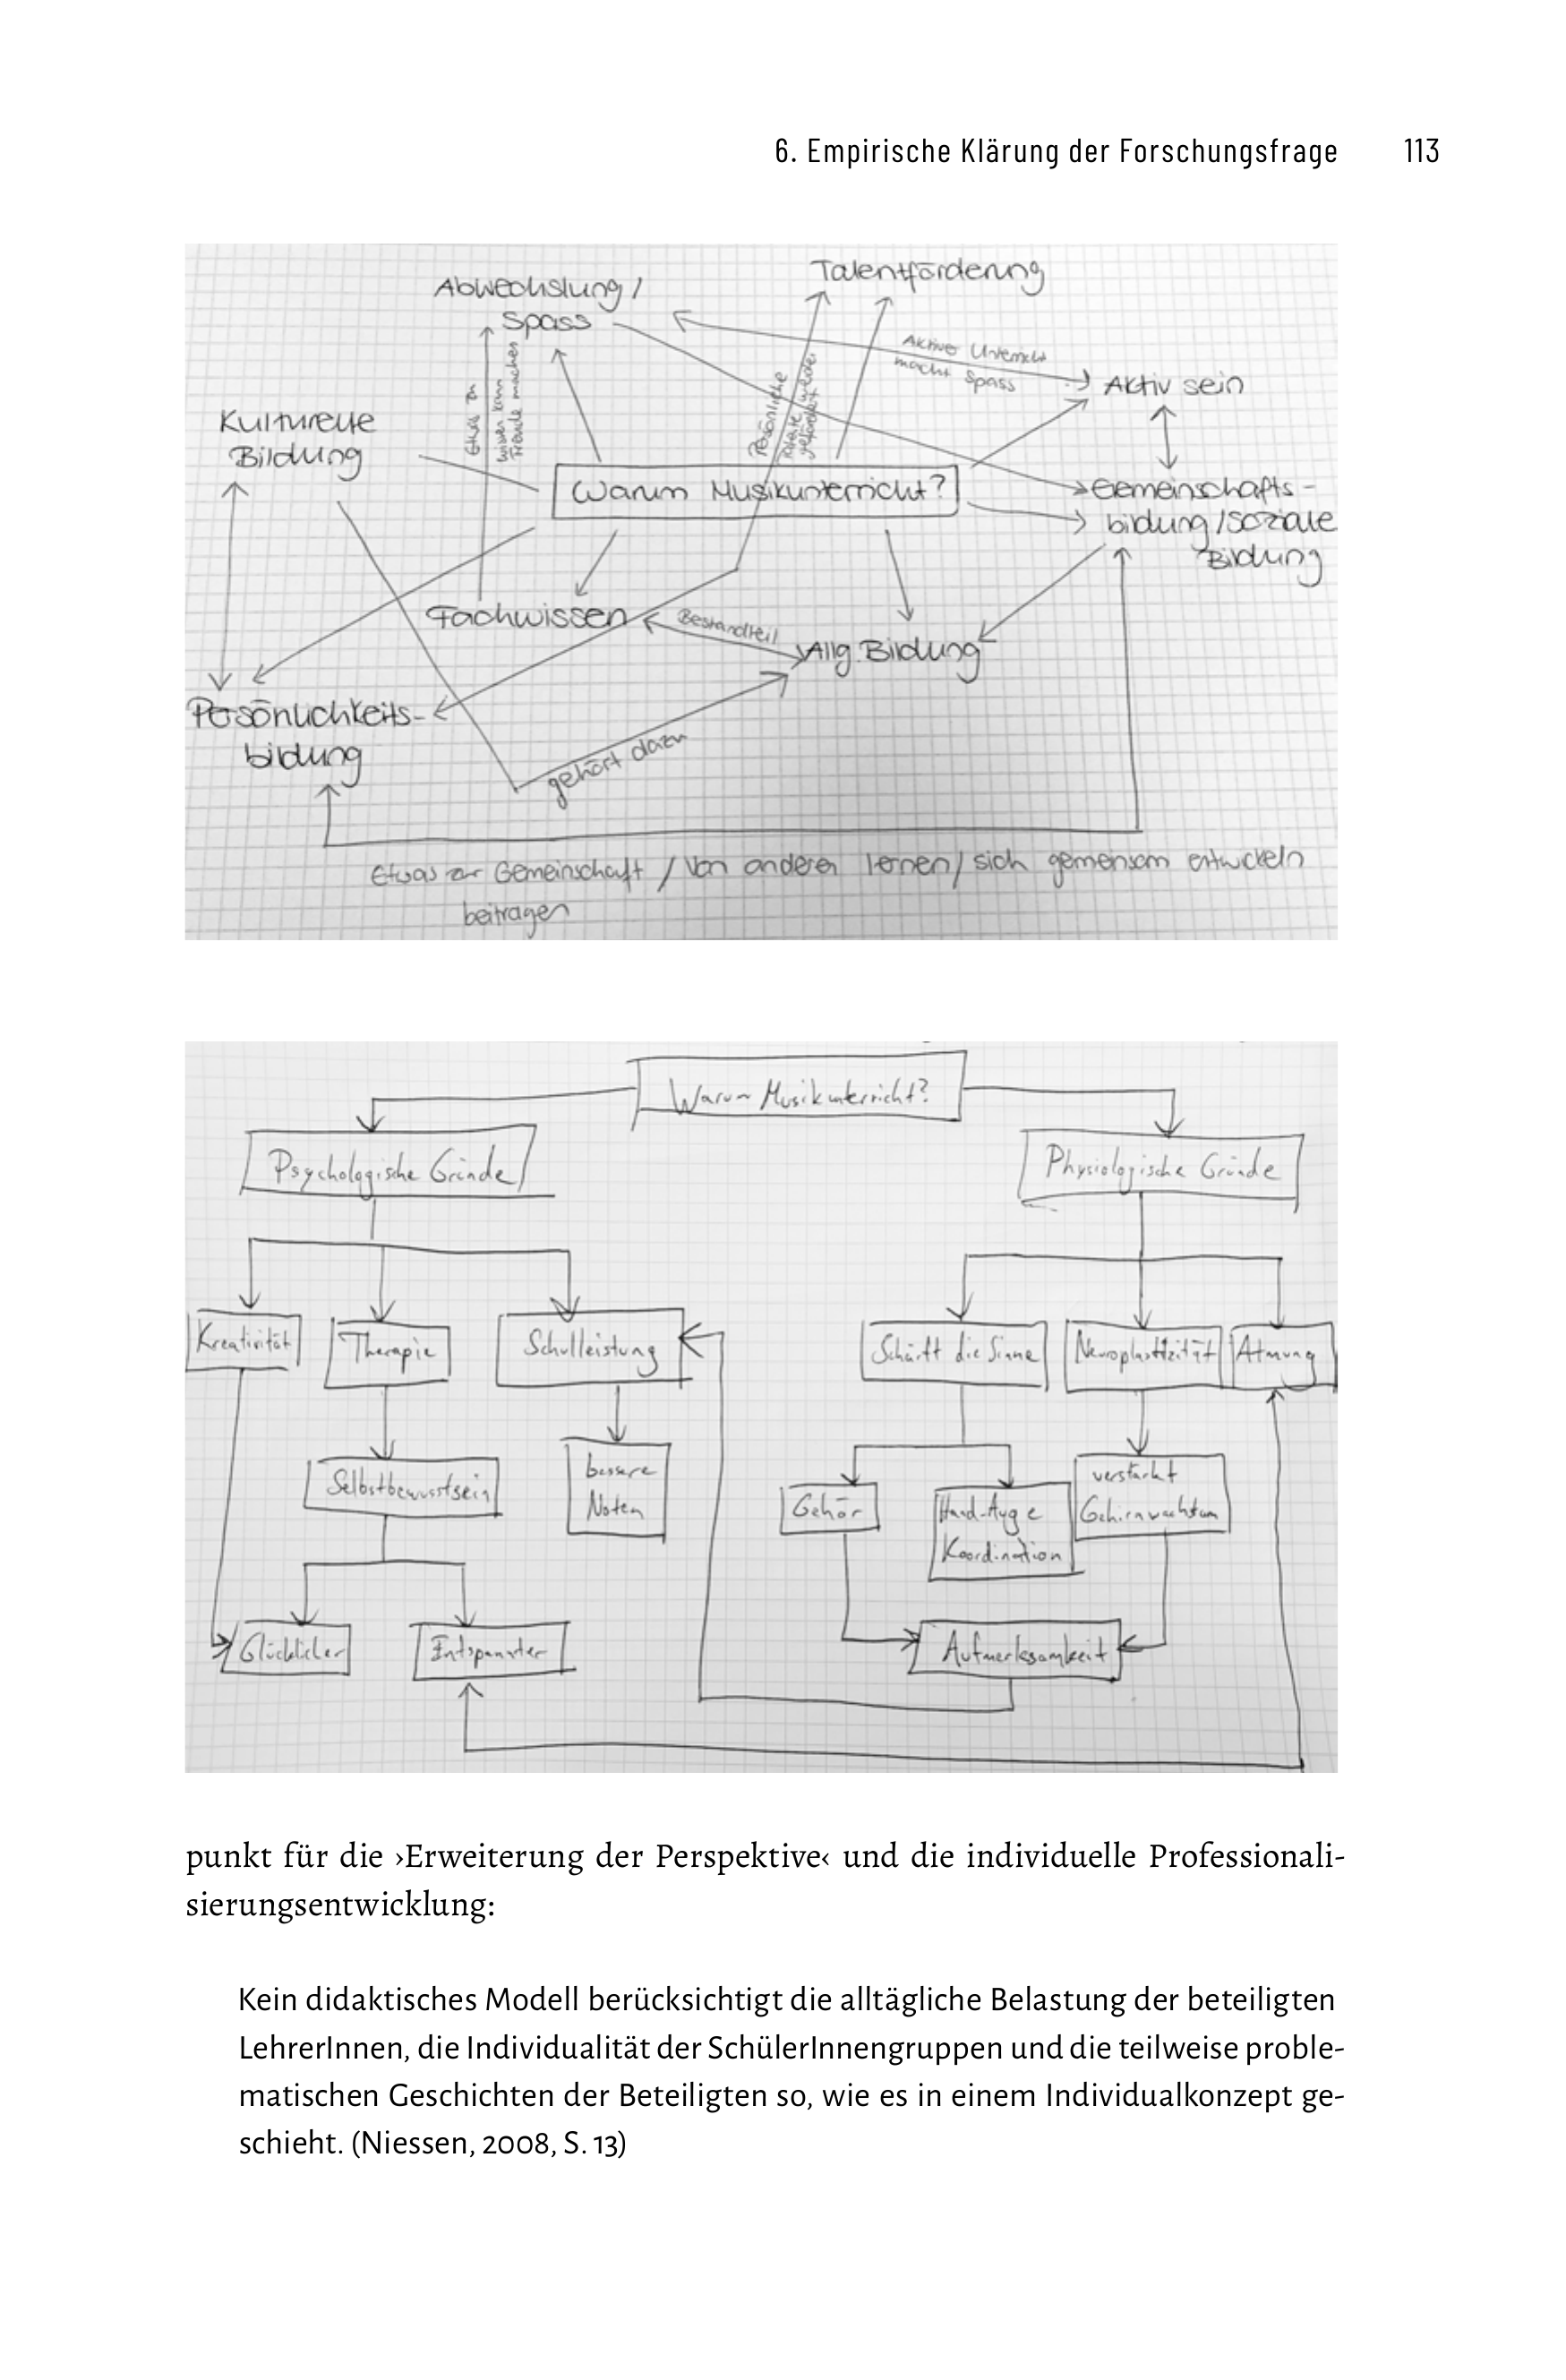 6. Empirische Klärung der Forschungsfrage 113
Talentförderung
Abwechslung /
Spass
Aktiver Unterricht
macht Spass
Aktiv sein
Kulturelle
Bildung
Etwas zu
wissen kann
Freude machen
Persönliche
Talente werden
gefördert
Warum Musikunterricht?
Gemeinschafts-
bildung / Soziale
Bildung
Fachwissen
Bestandteil
Allg. Bildung
Persönlichkeits-
bildung
gehört dazu
Etwas zur Gemeinschaft / Von anderen lernen / sich gemeinsam entwickeln
beitragen
Warum Musikunterricht?
Psychologische Gründe
Physiologische Gründe
Kreativität
Therapie
Schulleistung
Schärft die Sinne
Neuroplastizität
Atmung
Selbstbewusstsein
bessere
Noten
Gehör
Hand-Auge
Koordination
verstärkt
Gehirnwachstum
Glücklicher
Entspannter
Aufmerksamkeit
punkt für die ›Erweiterung der Perspektive‹ und die individuelle Professionali-
sierungsentwicklung:
Kein didaktisches Modell berücksichtigt die alltägliche Belastung der beteiligten
LehrerInnen, die Individualität der SchülerInnengruppen und die teilweise proble-
matischen Geschichten der Beteiligten so, wie es in einem Individualkonzept ge-
schieht. (Niessen, 2008, S. 13)